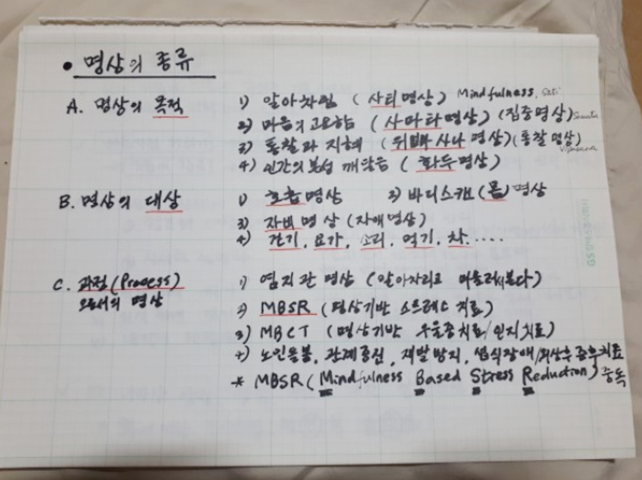 • 명상의 종류
A. 명상의 목적
1) 알아차림 (사티명상) Mindfulness, Sati
2) 마음의 고요함 (사마타명상) (집중명상)
3) 통찰과 지혜 (위빠사나 명상) (통찰명상)
4) 인간의 본성 깨달음 (화두명상)
B. 명상의 대상
1) 호흡명상 2) 바디스캔 (몸) 명상
3) 자비명상 (자애명상)
4) 걷기, 요가, 소리, 먹기, 차.....
C. 과정(Process)
으로서의 명상
1) 염지관 명상 (알아차리고 머물러본다)
2) MBSR (명상기반 스트레스 치료)
3) MBCT (명상기반 우울증치료/인지치료)
4) 노인돌봄, 관계증진, 재발방지, 섭식장애/외상후 증후치료
* MBSR (Mindfulness Based Stress Reduction) 중독